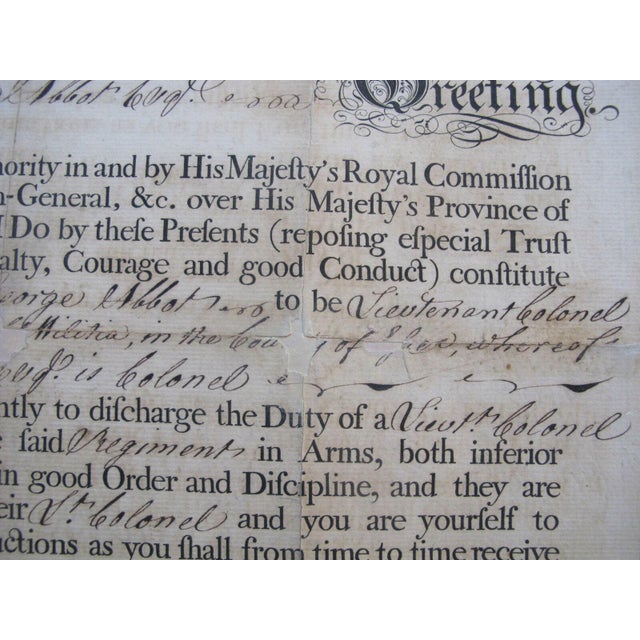 Abbot Esqr. Greeting.
hority in and by His Majeſty's Royal Commiſſion
n-General, &c. over His Majeſty's Province of
I Do by theſe Preſents (repoſing eſpecial Truſt
alty, Courage and good Conduct) conſtitute
George Abbot to be Lieutenant Colonel
Militia, in the Cou y of whereof
Esqr. is Colonel
ntly to diſcharge the Duty of a Lieutt. Colonel
e ſaid Regiment in Arms, both inferior
in good Order and Diſcipline, and they are
eir Lt. Colonel and you are yourſelf to
uctions as you ſhall from time to time receive